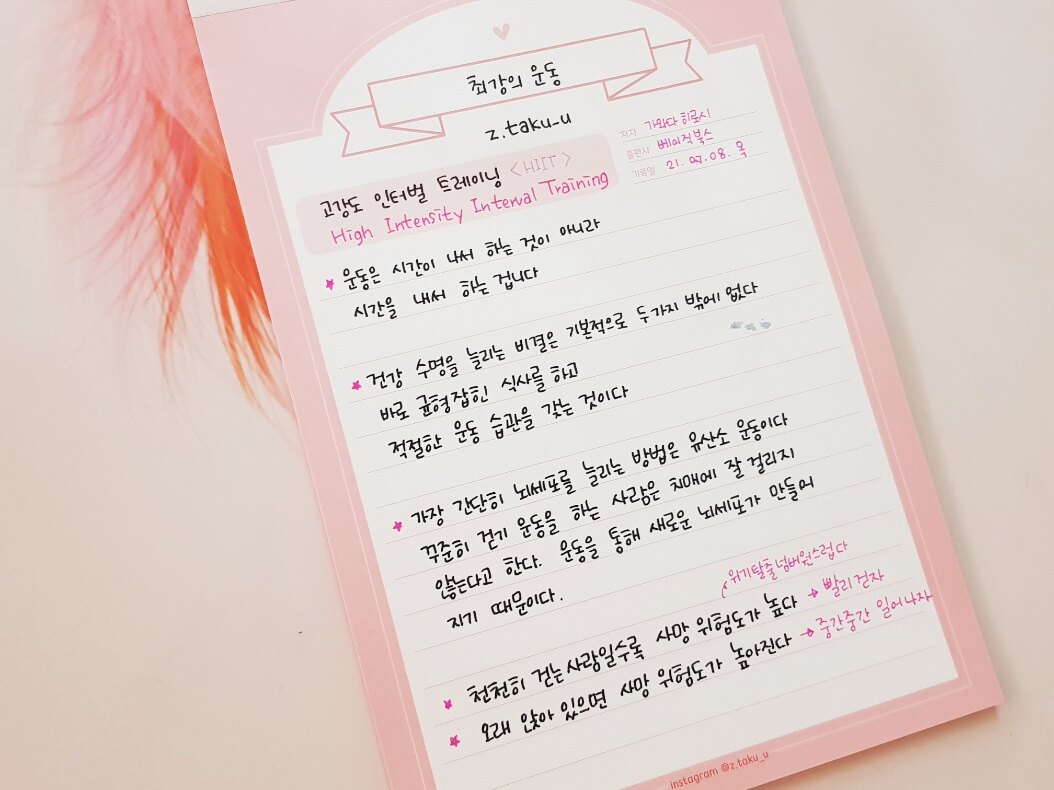 최강의 운동
z.taku_u
저자 가와다 히로시
출판사 베이직북스
기록일 21. 07. 08. 목
고강도 인터벌 트레이닝 <HIIT>
High Intensity Interval Training
운동은 시간이 나서 하는 것이 아니라
시간을 내서 하는 겁니다
건강 수명을 늘리는 비결은 기본적으로 두가지 밖에 없다
바로 균형잡힌 식사를 하고
적절한 운동 습관을 갖는 것이다
가장 간단히 뇌세포를 늘리는 방법은 유산소 운동이다
꾸준히 걷기 운동을 하는 사람은 치매에 잘 걸리지
않는다고 한다. 운동을 통해 새로운 뇌세포가 만들어
지기 때문이다.
위기탈출넘버원스럽다
천천히 걷는 사람일수록 사망 위험도가 높다 → 빨리 걷자
오래 앉아 있으면 사망 위험도가 높아진다 → 중간중간 일어나자
instagram @z.taku_u